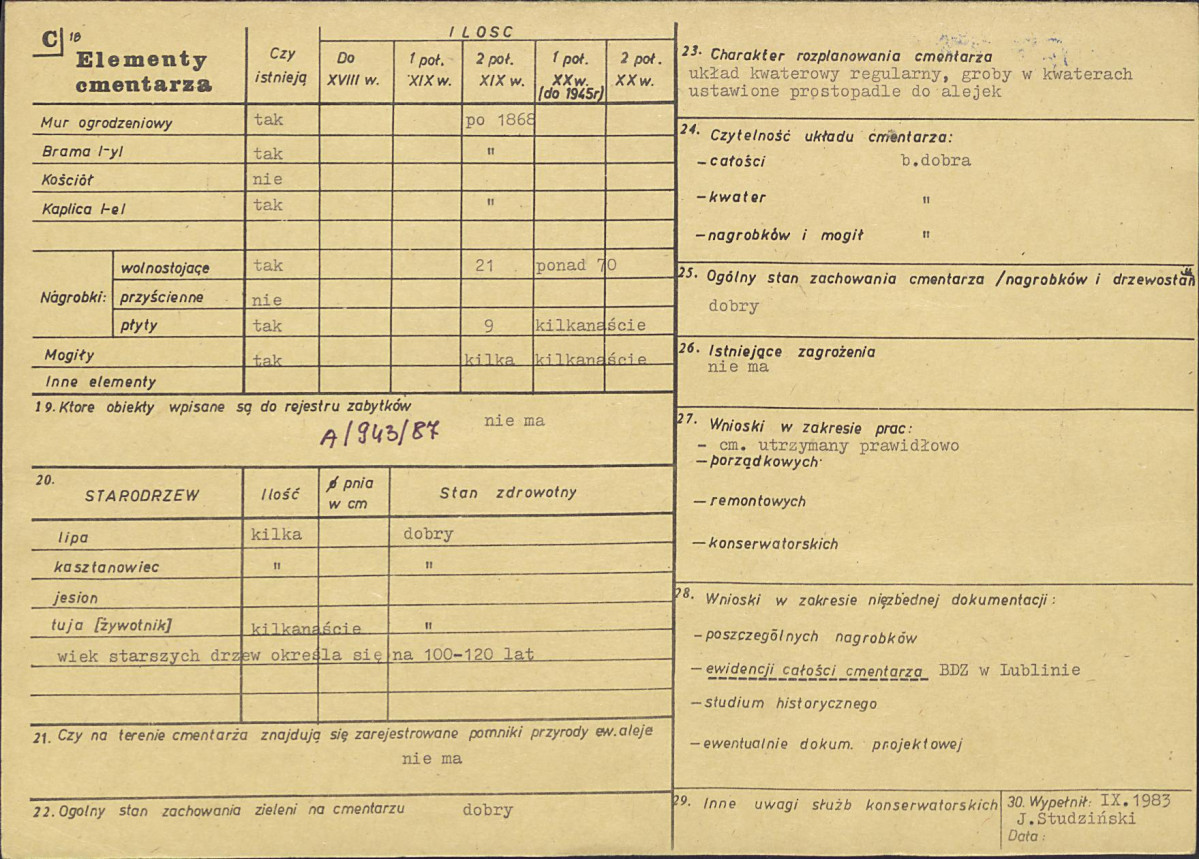 C 18
Elementy
cmentarza
Czy
istnieją
ILOSC
Do
XVIII w.
1 poł.
XIX w.
2 poł.
XIX w.
1 poł.
XX w.
(do 1945r)
2 poł.
XX w.
Mur ogrodzeniowy tak po 1868
Brama I-yl tak "
Kościół nie
Kaplica I-el tak "
Nagrobki: wolnostojące tak 21 ponad 70
przyścienne nie
płyty tak 9 kilkanaście
Mogiły tak kilka kilkanaście
Inne elementy
19. Ktore obiekty wpisane są do rejestru zabytków
nie ma
A/943/87
20.
STARODRZEW Ilość ϕ pnia
w cm Stan zdrowotny
lipa kilka dobry
kasztanowiec " "
jesion
tuja [żywotnik] kilkanaście "
wiek starszych drzew określa się na 100-120 lat
21. Czy na terenie cmentarza znajdują się zarejestrowane pomniki przyrody ew. aleje
nie ma
22. Ogolny stan zachowania zieleni na cmentarzu dobry
23. Charakter rozplanowania cmentarza
układ kwaterowy regularny, groby w kwaterach
ustawione prostopadle do alejek
24. Czytelność układu cmentarza:
– całości b.dobra
– kwater "
– nagrobków i mogił "
25. Ogólny stan zachowania cmentarza /nagrobków i drzewostan
dobry
26. Istniejące zagrożenia
nie ma
27. Wnioski w zakresie prac:
- cm. utrzymany prawidłowo
– porządkowych
– remontowych
– konserwatorskich
28. Wnioski w zakresie niezbednej dokumentacji:
– poszczególnych nagrobków
– ewidencji całości cmentarza BDZ w Lublinie
– studium historycznego
– ewentualnie dokum. projektowej
29. Inne uwagi służb konserwatorskich
30. Wypełnił: IX.1983
J.Studziński
Data: